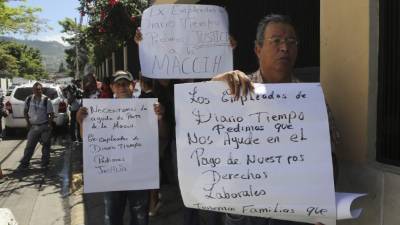 Ex Empleados de
Diario Tiempo
Pedimos JUSTICIA
a la
MACCIH
Necesitamos la
ayuda de Parte
de la Maccih
Ex empleados de
Diario Tiempo
Pedimos
Justicia
Los Empleados de
Diario Tiempo
Pedimos que
Nos Ayude en el
Pago de Nuestros
Derechos
Laborales
Tenemos Familias que